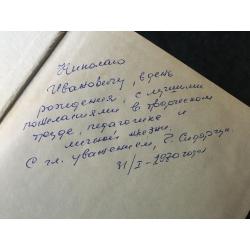 Николаю
Ивановичу, в день
рождения, с лучшими
пожеланиями в творческом
труде, педагогике и
личной жизни.
С гл. уважением,
31/I-1970 года